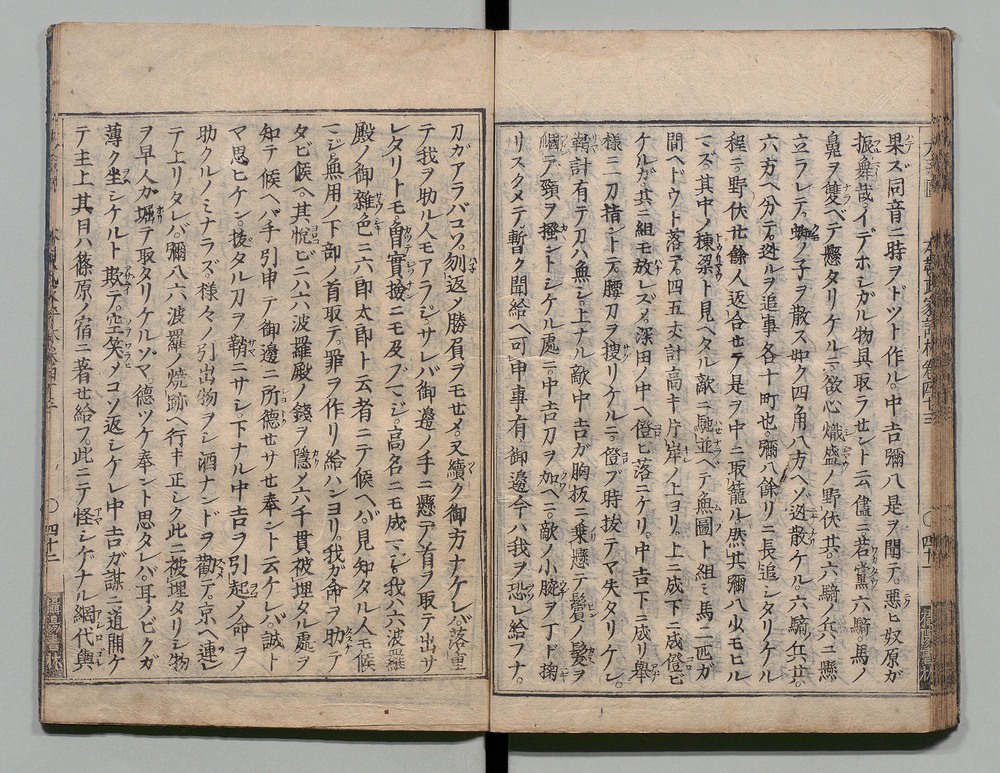 果ズ同音ニ時ヲドツト作ル。中吉彌八是ヲ聞テ。悪ヒ奴原ガ
振舞哉イデホシガル物具取ラセントテ云儘ニ若黨六騎。馬ノ
鼻ヲ雙ベテ懸タリケルニ。欲心熾盛ノ野伏共。六騎ノ兵ニ懸
立ラレテ。蜘ノ子ヲ散ス如ク四角八方ヘゾ迯散ケル。六騎ノ兵立。
六方ヘ分テ。迯ルヲ追事各十町也。彌八餘リニ長追シタリケル
程ニ。野伏廿餘人返合セテ是ヲ中ニ取籠ル。然共彌八少モヒル
マズ。其中ノ棟梁ト見ヘタル敵ニ馳並ベテ無圖ト組ミ馬二匹ガ
間ヘドウト落テ。四五丈計高キ片岸ノ上ヨリ。上ニ成下ニ成㒓ビ
ケルガ。其ニ組モ放レズメ深田ノ中ヘ㒓ビ落ニケリ。中吉下ニ成リ舉
樣ニ一刀指ントテ。腰刀ヲ捜リケルニ。㒓ブ時抜テヤ失タリケレ。
鞘計有テ刀ハ無シ。上ナル敵中吉ガ胸板ニ乗懸テ鬢ノ髪ヲ
掴テ頸ヲ掻ントシケル處ニ。中吉刀ヲ加ヘニ。敵ノ小腕ヲ丁ド掬
リスクメテ。暫ク聞給ヘ可申事有。御邊今ハ我ヲ恐レ給フナ。
刀ガアラバコソ。刎返メ勝負ヲモセメ。又續ク御方ナケレバ。落重
テ我ヲ助ル人モアラジ。サレバ御邊ノ手ニ懸テ首ヲ取テ出サ
レタリトモ。曽實撿ニモ及ブマジ。高名ニモ成マジ。我ハ六波羅
殿ノ御雜色ニ六郎太郎ト云者ニテ候ヘバ。見知タル人モ候
マジ。無用ノ下部ノ首取テ。罪ヲ作リ給ハンヨリ。我ガ命ヲ助テ
タビ候ヘ。其悦ビニハ六波羅殿ノ錢ヲ隱メ六千貫被埋タル處ヲ
知テ候ヘバ手引申テ御邊ニ所德セサセ奉ント云ケレバ。誠ト
マ思ヒケン。抜タル刀ヲ鞘ニサシ。下ナル中吉ヲ引起メ命ヲ
助クルノミナラズ。樣々ノ引出物ヲシ酒ナンドヲ勸テ。京ヘ連レ
テ上リタレバ。彌八六波羅ノ燒跡ヘ行キ正シク此ニ被埋タリシ物
ヲ早人ガ堀テ取タリケルゾヤ。德ツケ奉ント思タレバ。耳ノビクガ
薄ク坐シケルト欺テ。空笑メコソ返シケレ中吉ガ謀ニ道開ケ
テ主上其日ハ篠原ノ宿ニ著セ給フ。此ニテ怪シケナル網代輿
四十一
四十二